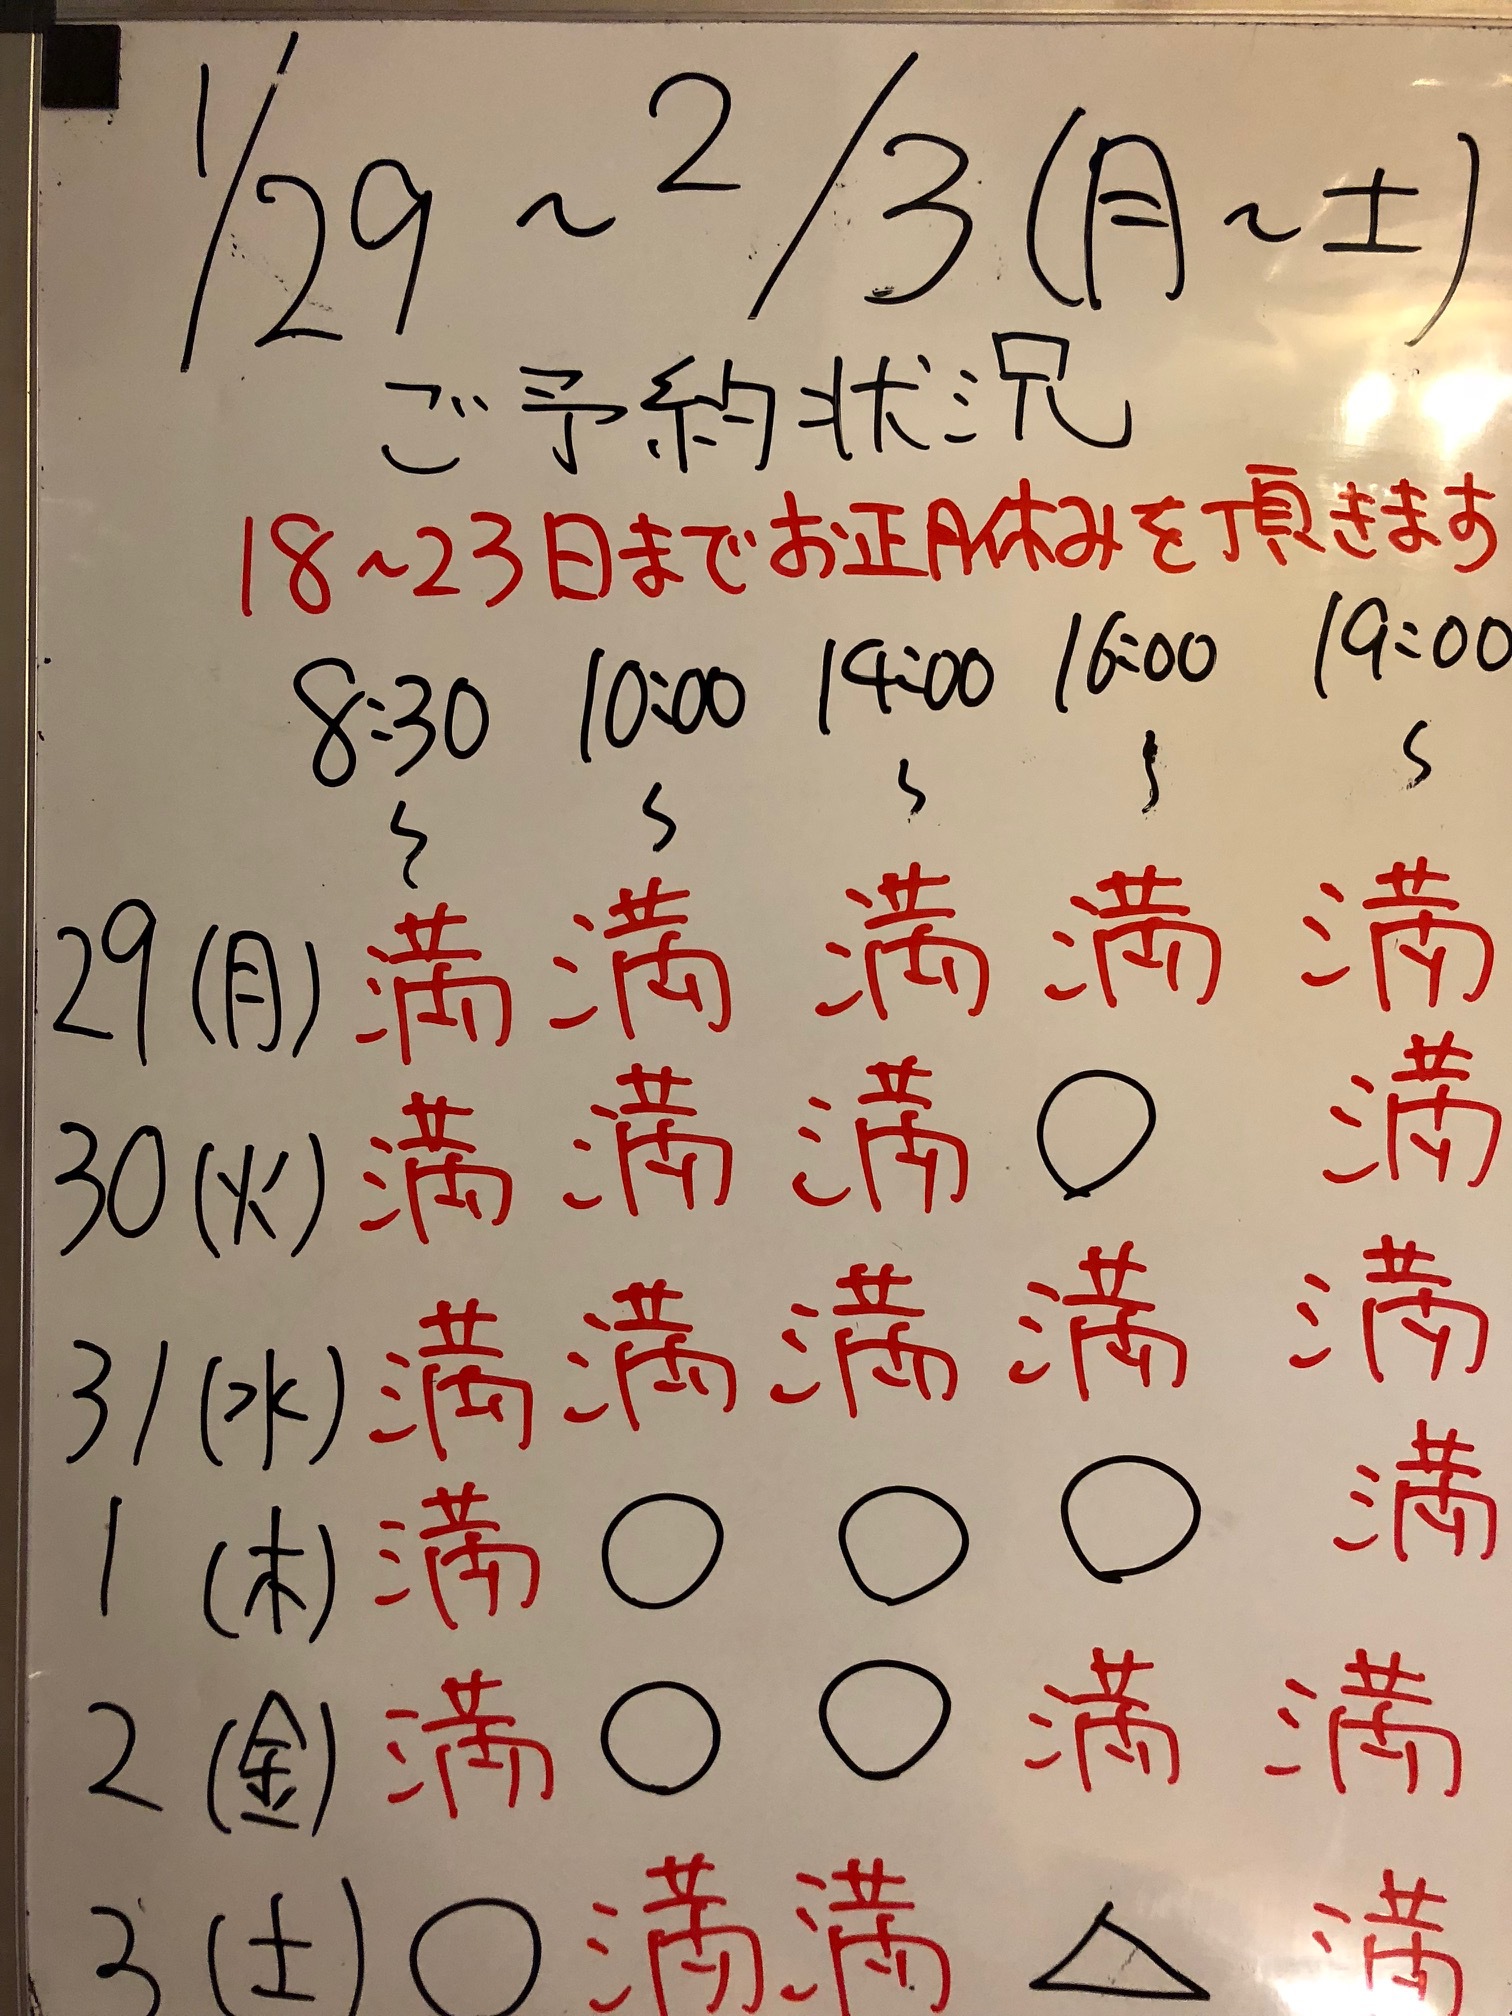 1/29～2/3(月～土)
ご予約状況
18～23日までお正月休みを頂きます
8:30 10:00 14:00 16:00 19:00
～ ～ ～ ～ ～
29(月) 満 満 満 満 満
30(火) 満 満 満 ○ 満
31(水) 満 満 満 満 満
1(木) 満 ○ ○ ○ 満
2(金) 満 ○ ○ 満 満
3(土) ○ 満 満 △ 満